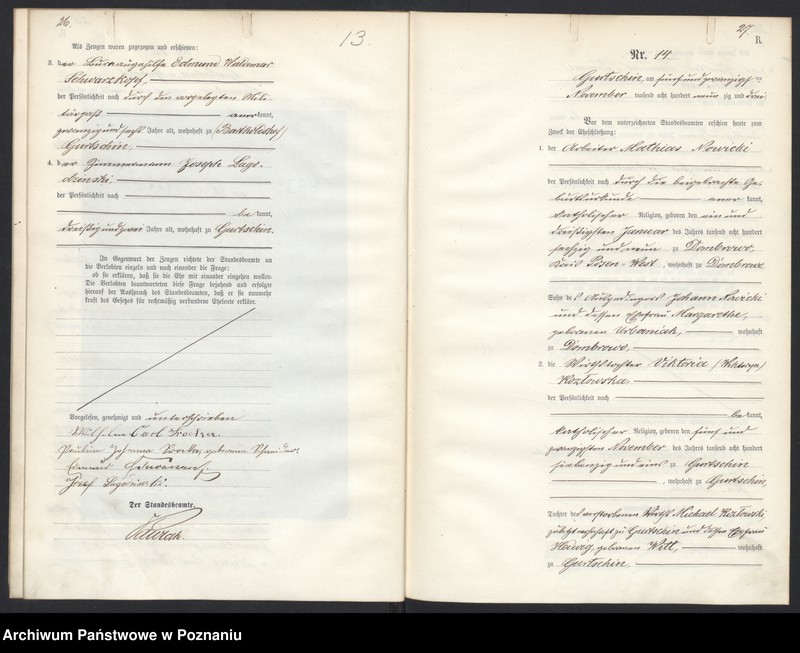 26.
13.
Als Zeugen waren zugezogen und erschienen:
3. der Bureaugehilfe Edmund Waldemar
Schwarzkopf,
der Persönlichkeit nach durch den vorgelegten Mili-
tärpaß anerkannt,
zwanzig und sechs Jahre alt, wohnhaft zu (Bartholdshof)
Gurtschin.
4. der Zimmermann Joseph Lago-
dzinski,
der Persönlichkeit nach
bekannt,
dreißig und zwei Jahre alt, wohnhaft zu Gurtschin.
In Gegenwart der Zeugen richtete der Standesbeamte an
die Verlobten einzeln und nach einander die Frage:
ob sie erklären, daß sie die Ehe mit einander eingehen wollen.
Die Verlobten beantworteten diese Frage bejahend und erfolgte
hierauf der Ausspruch des Standesbeamten, daß er sie nunmehr
kraft des Gesetzes für rechtmäßig verbundene Eheleute erkläre.
Vorgelesen, genehmigt und unterschrieben
Wilhelm Carl
Pauline Johanna geborene
Edmund Schwarzkopf
Josef Lagodzinski.
Der Standesbeamte.
27.
B.
Nr. 14
Gurtschin, am fünf und zwanzigsten
November tausend acht hundert neunzig und drei
Vor dem unterzeichneten Standesbeamten erschien heute zum
Zweck der Eheschließung:
1. der Arbeiter Mathias Nowicki
der Persönlichkeit nach durch die beigebrachte Ge-
burtsurkunde anerkannt,
katholischer Religion, geboren den ein und
dreißigsten Januar des Jahres tausend acht hundert
sechzig und neun zu Dombrowo,
Kreis Posen-West, wohnhaft zu Dombrowo
Sohn des Ausgedingers Johann Nowicki
und dessen Ehefrau Margarethe,
geborenen Urbaniak, wohnhaft
zu Dombrowo.
2. die Wirthstochter Viktoria (Wiktorya)
Kozlowska,
der Persönlichkeit nach
bekannt,
katholischer Religion, geboren den fünf und
zwanzigsten November des Jahres tausend acht hundert
siebenzig und eins zu Gurtschin
, wohnhaft zu Gurtschin,
Tochter des verstorbenen Wirths Michael Kozlowski,
zuletzt wohnhaft zu Gurtschin und dessen Ehefrau
Hedwig, geborenen Witt, wohnhaft
zu Gurtschin.
Archiwum Państwowe w Poznaniu